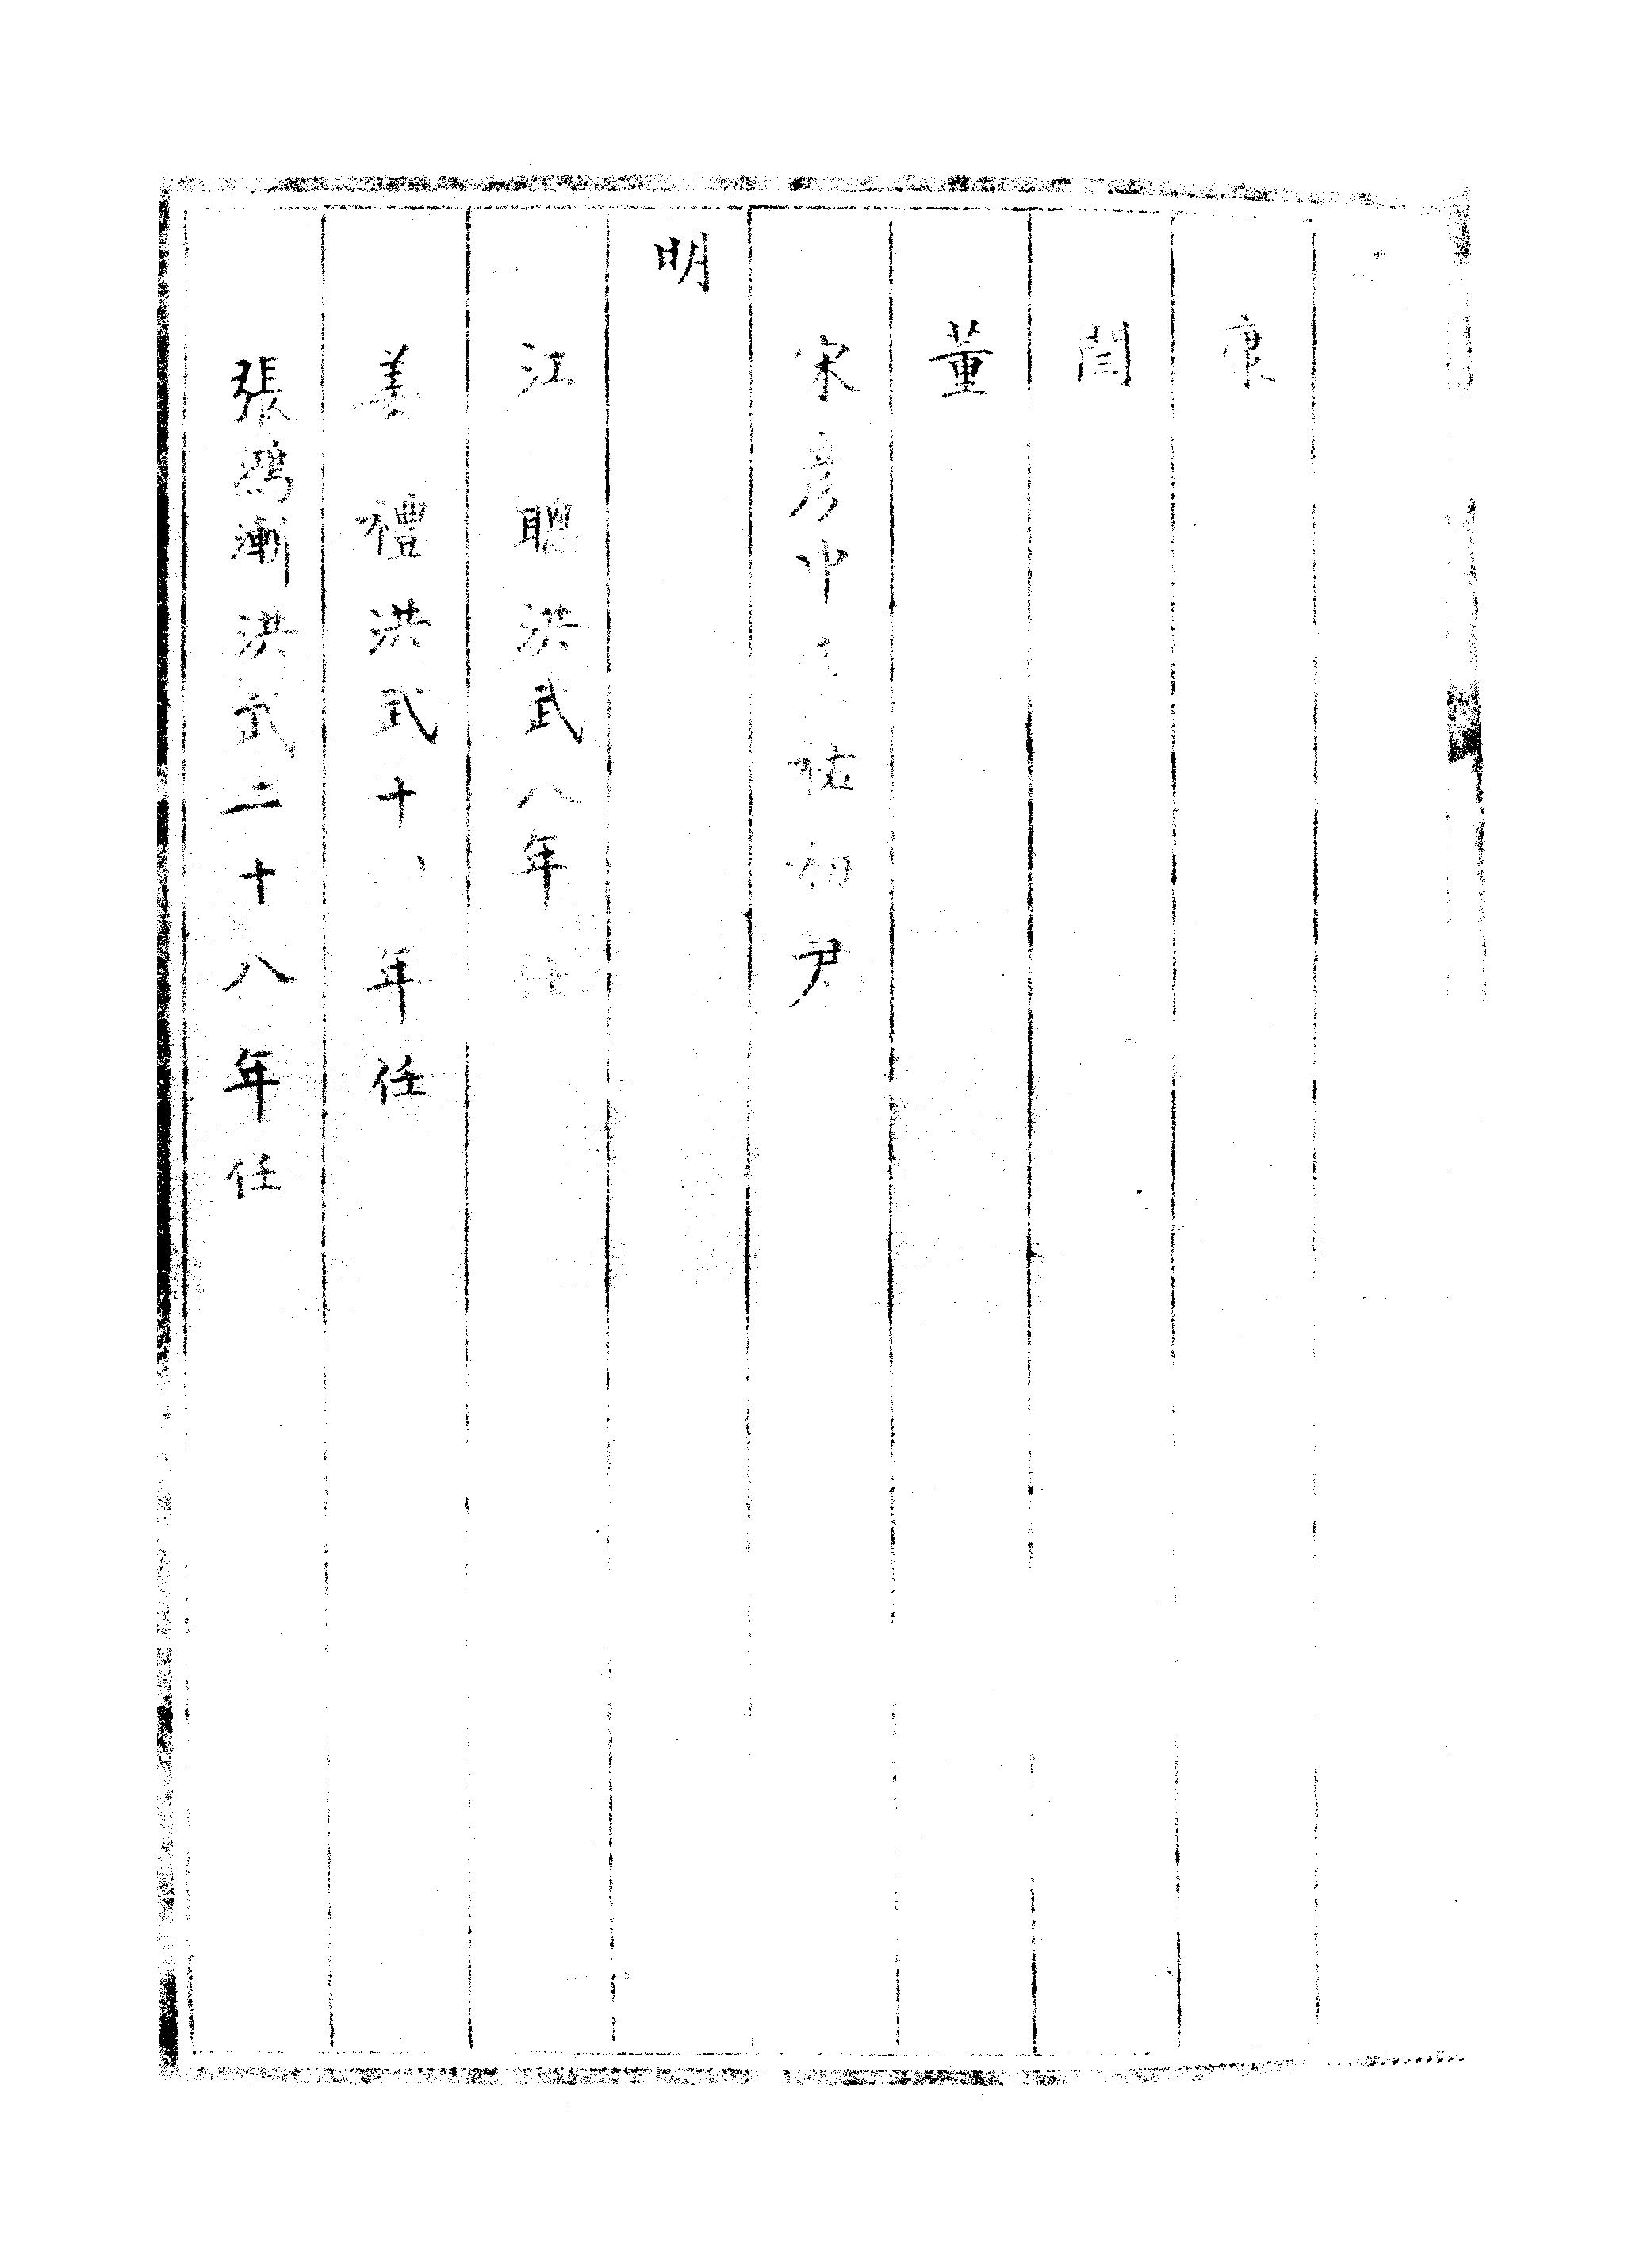 康
閆
董
宋彦中 祐初尹
明
江聰洪武八年任
姜禮洪武十 年任
張鴻漸洪武二十八年任